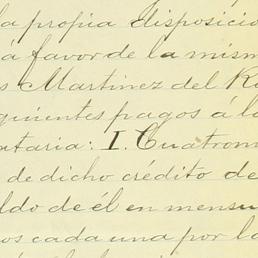 la propia disposicio
á favor de la mism
s Martinez del R
guientes pagos á la
ntaria: I. Cuatrom
de dicho crédito de
ldo de él en mensu
os cada una por la